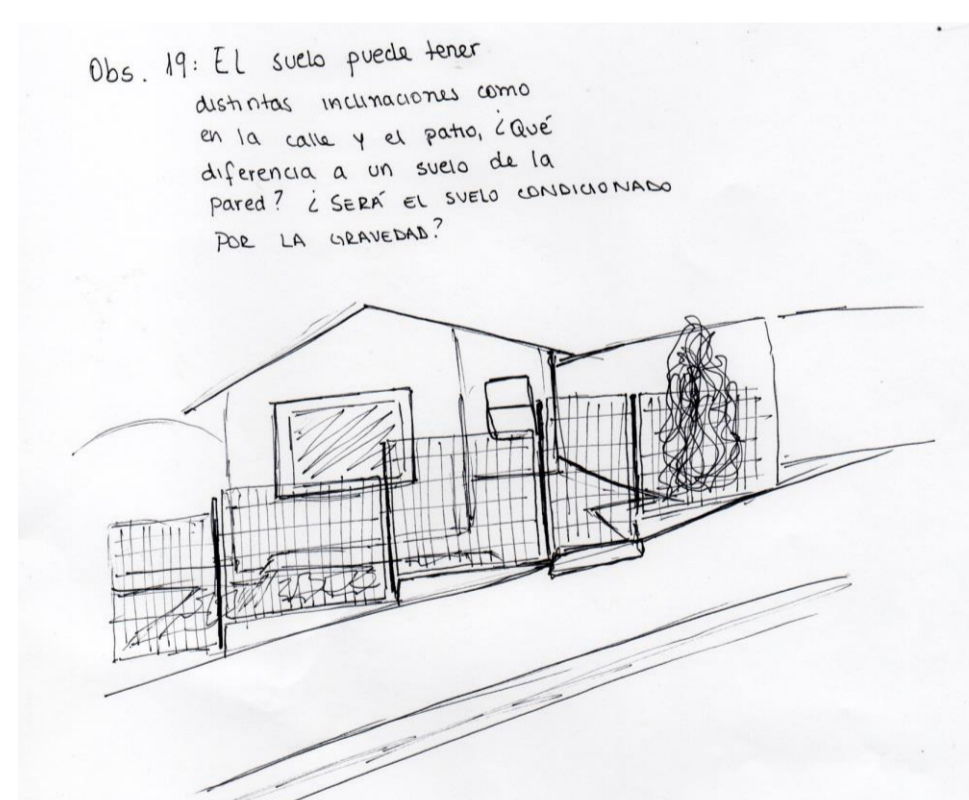 Obs. 19: El suelo puede tener
distintas inclinaciones como
en la calle y el patio, ¿Qué
diferencia a un suelo de la
pared? ¿ SERÁ EL SUELO CONDICIONADO
POR LA GRAVEDAD?